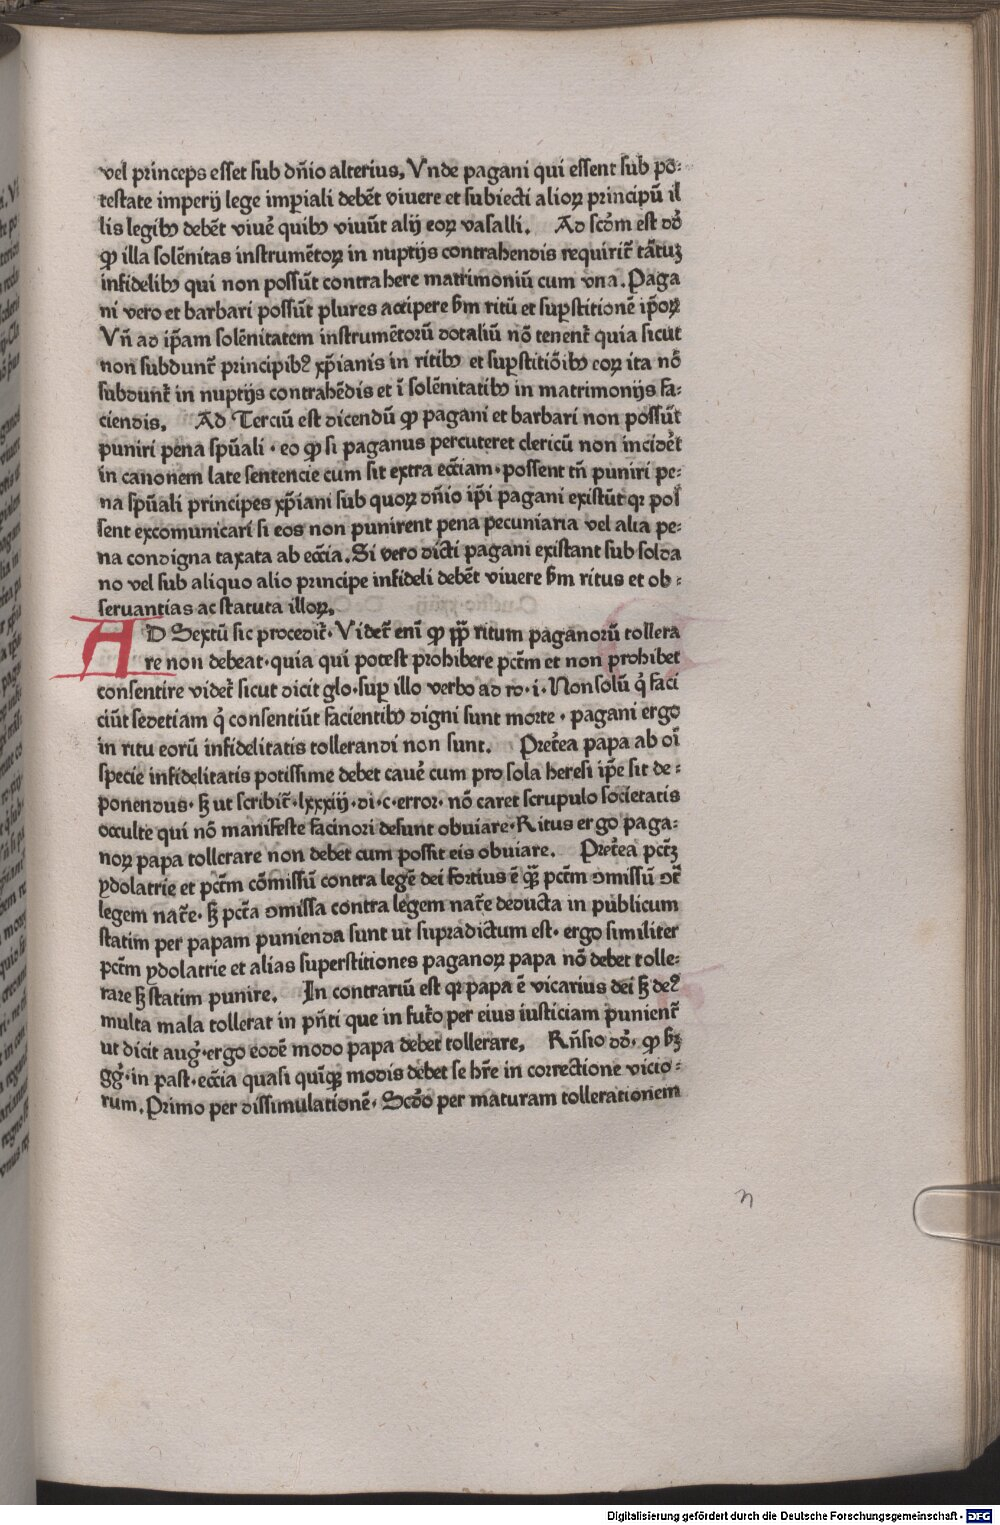 vel princeps esset sub dñio alterius, Vnde pagani qui essent sub po:
testate imperij lege imꝑiali debēt viuere et subiecti alioꝝ principū il
lis legibꝫ debēt viuē quibꝫ viuūt alij eoꝝ vasalli. Ad scd̄m est dd̄
ꝙ illa solēnitas instrumētoꝝ in nuptijs contrahendis requirit̃ tātuꝫ
infidelibꝫ qui non possūt contrahere matrimoniū cum vna. Paga
ni vero et barbari possūt plures accipere ẜm ritū et suꝑstitionē ip̄oꝝ
Vñ ad ip̄am solēnitatem instrumētorū dotaliū nō tenent̃ quia sicut
non subdunt̃ principibꝰ xp̄ianis in ritibꝫ et suꝑstitiōibꝫ eoꝝ ita nō
subdunt̃ in nuptijs contrahēdis et ī solēnitatibꝫ in matrimonijs fa:
ciendis. Ad Terciū est dicendū ꝙ pagani et barbari non possūt
puniri pena spūali · eo ꝙ si paganus percuteret clericū non incidēt
in canonem late sentencie cum sit extra ecc̄iam · possent tñ puniri pe:
na spūali principes xp̄iani sub quoꝝ dñio ip̄i pagani existūt qꝛ pos
sent excomunicari si eos non punirent pena pecuniaria vel alia pe:
na condigna taxata ab ecc̄ia. Si vero dicti pagani existant sub solda
no vel sub aliquo alio principe infideli debēt viuere ẜm ritus et ob:
seruantias ac statuta illoꝝ.
AD Sextū sic procedit̃. Videt̃ enī ꝙ pp̄ ritum paganorū tollera
re non debeat · quia qui potest prohibere pct̄m et non prohibet
consentire videt̃ sicut dicit glo · suꝑ illo verbo ad ro · i · Non solū q̇ faci
ciūt sedetiam q̇ consentiūt facientibꝫ digni sunt morte · pagani ergo
in ritu eorū infidelitatis tollerandi non sunt. Pret̃ea papa ab oī
specie infidelitatis potissime debet cauē cum pro sola heresi ip̄e sit de:
ponendus · ſꝫ ut scribit̃ · lxxxiij · di · c · error · nō caret scrupulo societatis
occulte qui nō manifeste facinori desunt obuiare · Ritus ergo paga:
noꝝ papa tollerare non debet cum possit eis obuiare. Pret̃ea pct̄ꝫ
ydolatrie et pct̄m cōmissū contra legē dei fortius ē qꝫ pct̄m ɔmissū ɔt̃
legem nat̃e · ſꝫ pct̄a ɔmissa contra legem nat̃e deducta in publicum
statim per papam punienda sunt ut supradictum est · ergo similiter
pct̄m ydolatrie et alias superstitiones paganoꝝ papa nō debet tolle:
rare ſꝫ statim punire. In contrariū est qꝛ papa ē vicarius dei ſꝫ deꝰ
multa mala tollerat in pñti que in fut̃o per eius iusticiam punient̃
ut dicit aug̃ · ergo eodē modo papa debet tollerare, Rñsio dd̄ · ꝙ ẜꝫ
gg̃ · in past · ecc̄ia quasi quīqꝫ modis debet se hr̄e in correctione vicio:
rum. Primo per dissimulationē · Scd̄o per maturam tollerationem
n
Digitalisierung gefördert durch die Deutsche Forschungsgemeinschaft - DFG